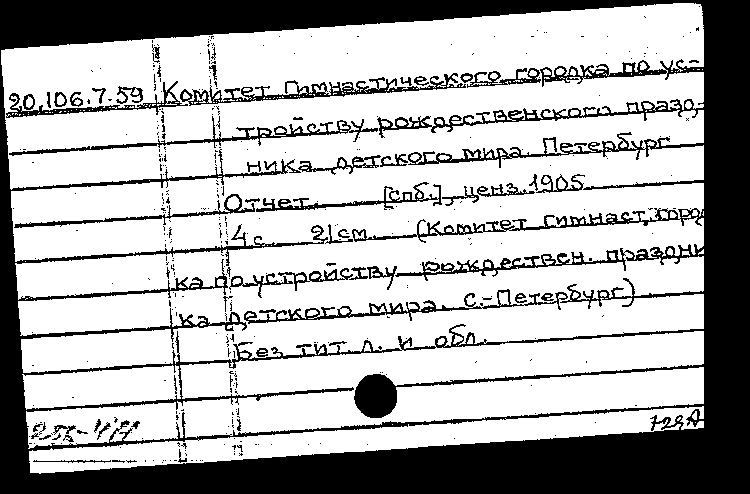 20.106.7.59 Комитет Гимнастического городка по ус-
тройству рождественского празд-
ника детского мира. Петербург
Отчет. [спб.], ценз. 1905.
4 с. 21 см. (Комитет гимнаст. город
ка по устройству рождествен. праздни
ка детского мира. С.-Петербург)
Без тит. л. и обл.